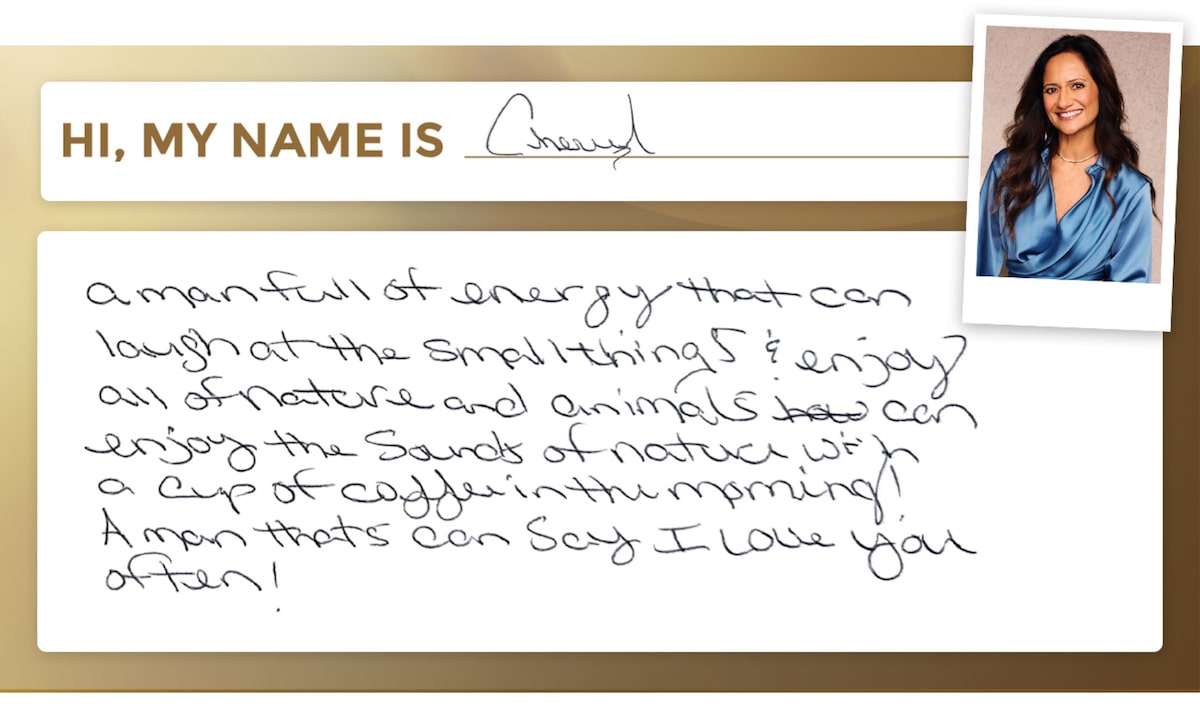 HI, MY NAME IS Cheryl
a man full of energy that can
laugh at the small things & enjoy
all of nature and animals how can
enjoy the sounds of nature with
a cup of coffee in the morning!
A man thats can say I love you
often!